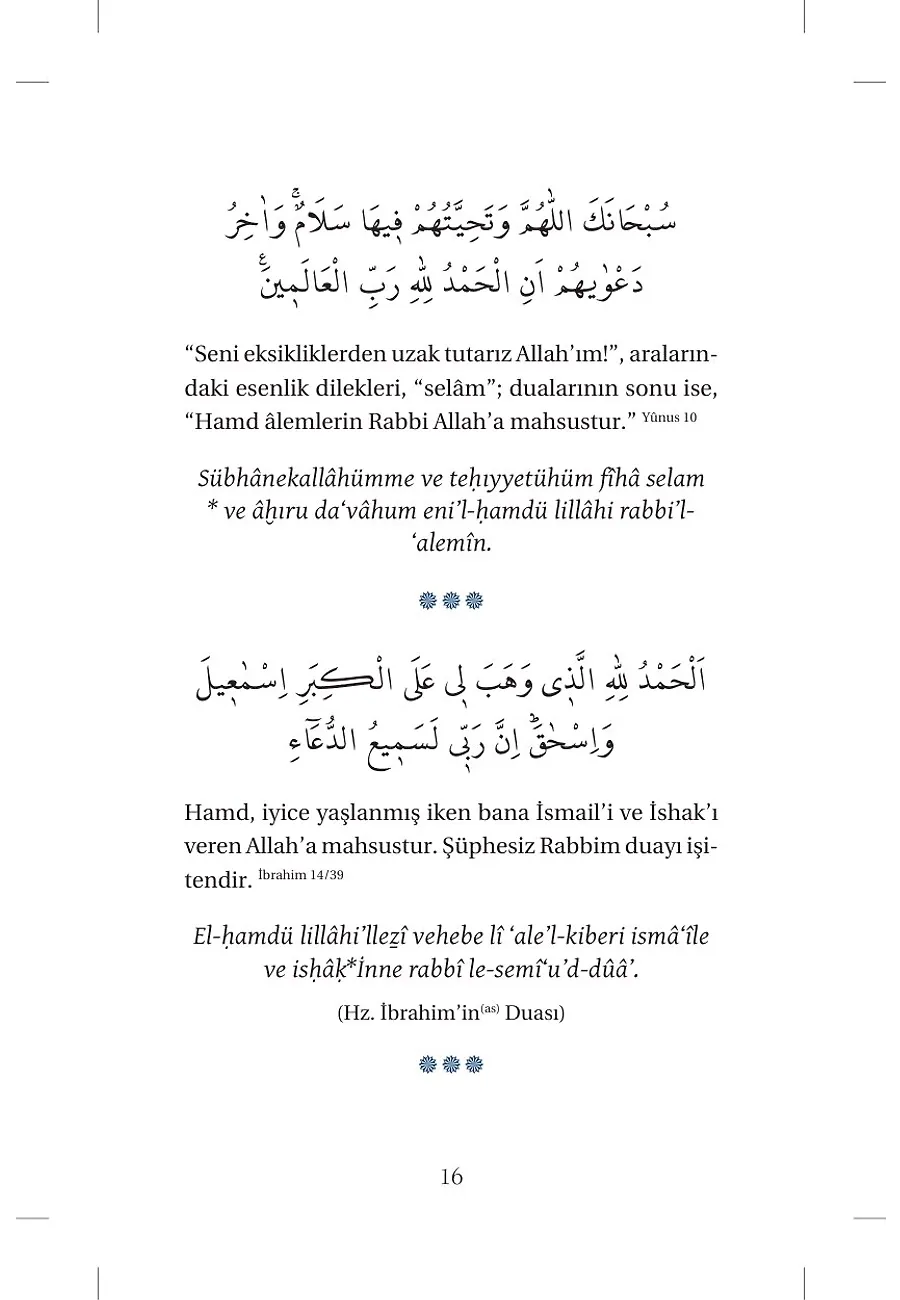 سُبْحَانَكَ اللّٰهُمَّ وَتَحِيَّتُهُمْ ف۪يهَا سَلَامٌۚ وَاٰخِرُ
دَعْوٰيهُمْ اَنِ الْحَمْدُ لِلّٰهِ رَبِّ الْعَالَم۪ينَ۟
“Seni eksikliklerden uzak tutarız Allah’ım!”, araların-
daki esenlik dilekleri, “selâm”; dualarının sonu ise,
“Hamd âlemlerin Rabbi Allah’a mahsustur.” Yûnus 10
Sübhânekallâhümme ve teḥıyyetühüm fîhâ selam
* ve âḫıru da‘vâhum eni’l-ḥamdü lillâhi rabbi’l-
‘alemîn.
اَلْحَمْدُ لِلّٰهِ الَّذ۪ى وَهَبَ ل۪ى عَلَى الْكِبَرِ اِسْمٰع۪يلَ
وَاِسْحٰقَۜ اِنَّ رَبّ۪ى لَسَم۪يعُ الدُّعَٓاءِ
Hamd, iyice yaşlanmış iken bana İsmail’i ve İshak’ı
veren Allah’a mahsustur. Şüphesiz Rabbim duayı işi-
tendir. İbrahim 14/39
El-ḥamdü lillâhi’lleẕî vehebe lî ‘ale’l-kiberi ismâ‘île
ve isḥâḳ*İnne rabbî le-semî‘u’d-dûâ’.
(Hz. İbrahim’in(as) Duası)
16